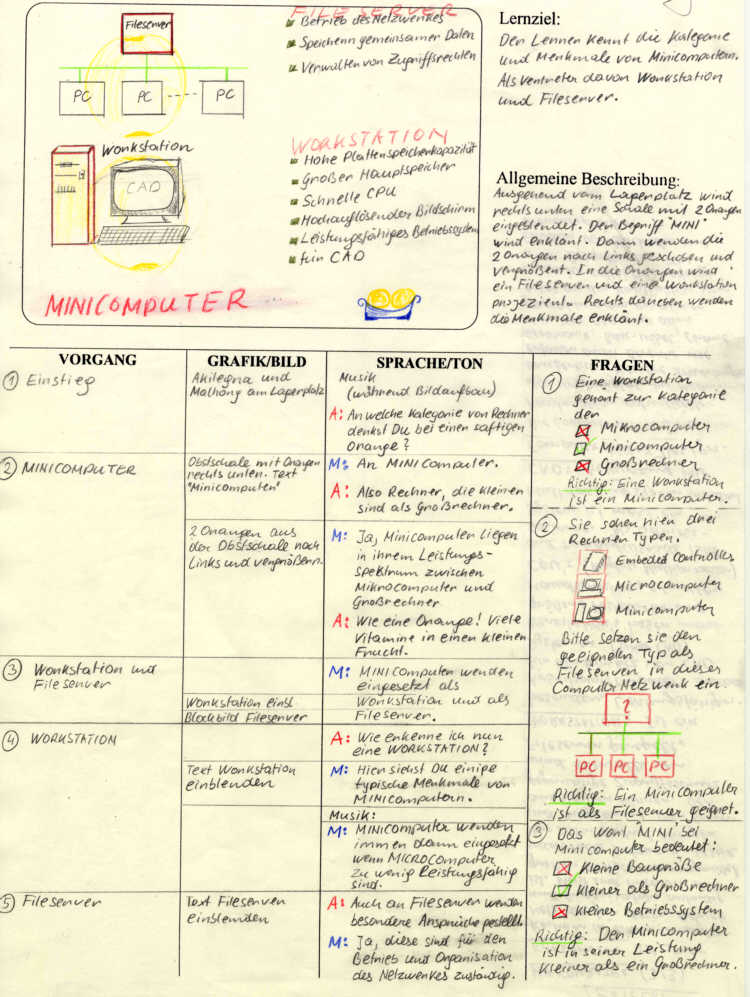 Fileserver
PC
PC
PC
Workstation
CAD
MINICOMPUTER
FILE SERVER
Betrieb des Netzwerkes
Speichern gemeinsamer Daten
Verwalten von Zugriffsrechten
WORKSTATION
Hohe Plattenspeicherkapazität
Großer Hauptspeicher
Schnelle CPU
Hochauflösender Bildschirm
Leistungsfähiges Betriebssystem
für CAD
Lernziel:
Der Lerner kennt die Kategorie
und Merkmale von Minicomputern.
Als Vertreter davon Workstation
und Fileserver.
Allgemeine Beschreibung:
Ausgehend vom Lagerplatz wird
rechts unten eine Schale mit 2 Orangen
eingeblendet. Der Begriff "MINI"
wird erklärt. Dann werden die
2 Orangen nach Links geschoben und
vergrößert. In die Orangen wird
ein Fileserver und eine Workstation
projeziert. Rechts daneben werden
die Merkmale erklärt.
VORGANG
GRAFIK/BILD
SPRACHE/TON
FRAGEN
1 Einstieg
Akilegna und
Mathöng am Lagerplatz
Musik
(während Bildaufbau)
A: An welche Kategorie von Rechner
denkst Du bei einer saftigen
Orange?
2 MINICOMPUTER
Obstschale mit Orangen
rechts unten. Text
"Minicomputer"
M: An MINIcomputer.
A: Also Rechner, die kleiner
sind als Großrechner.
2 Orangen aus
der Obstschale nach
Links und vergrößern.
M: Ja, Minicomputer liegen
in ihrem Leistungs-
spektrum zwischen
Mikrocomputer und
Großrechner
A: Wie eine Orange! Viele
Vitamine in einer kleinen
Frucht.
3 Workstation und
Fileserver
Workstation einbl.
Blockbild Fileserver
M: MINIcomputer werden
eingesetzt als
Workstation und als
Fileserver.
4 WORKSTATION
A: Wie erkenne ich nun
eine WORKSTATION?
Text Workstation
einblenden
M: Hier siehst Du einige
typische Merkmale von
MINIcomputern.
Musik:
M: MINIcomputer werden
immer dann eingesetzt
wenn MICROcomputer
zu wenig Leistungsfähig
sind.
5 Fileserver
Text Fileserver
einblenden
A: Auch an Fileserver werden
besondere Ansprüche gestellt.
M: Ja, diese sind für den
Betrieb und Organisation
des Netzwerkes zuständig.
1 Eine Workstation
gehört zur Kategorie
der
Mikrocomputer
Minicomputer
Großrechner
Richtig: Eine Workstation
ist ein Minicomputer.
2 Sie sehen hier drei
Rechner Typen.
Embeded Controller
Microcomputer
Minicomputer
Bitte setzen sie den
geeigneten Typ als
Fileserver in dieses
Computer Netzwerk ein.
?
PC PC PC
Richtig: Ein Minicomputer
ist als Fileserver geeignet.
3 Das Wort "MINI" bei
Minicomputer bedeutet:
Kleine Baugröße
Kleiner als Großrechner
kleines Betriebssystem
Richtig: Der Minicomputer
ist in seiner Leistung
Kleiner als ein Großrechner.